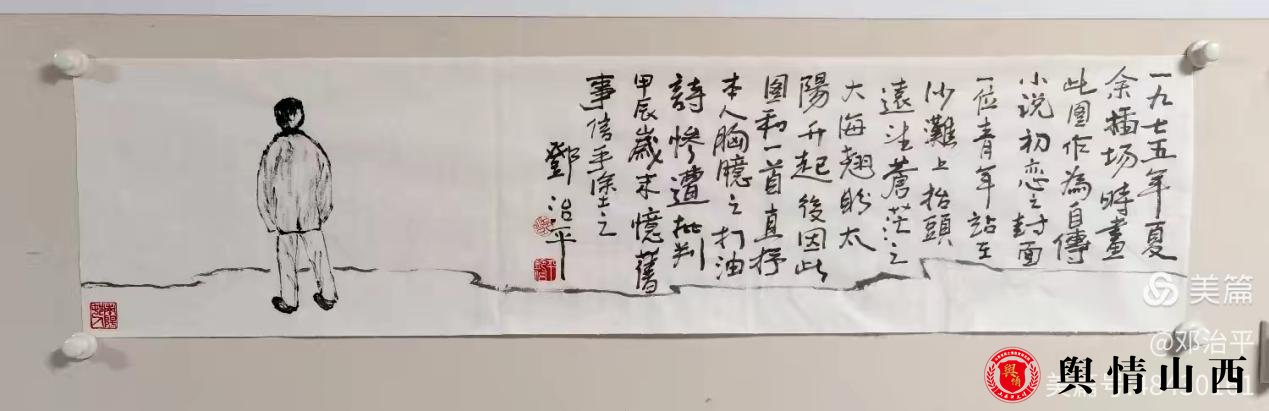 一九七五年夏
余插场時畫
此图作為自傳
小说初恋之封面
一位青年站在
沙灘上抬頭
遠望蒼茫之
大海翹盼太
陽升起後因此
图和一首直抒
本人胸臆之打油
詩慘遭批判
甲辰歲末憶舊
事信手塗之
鄧治平
美篇
@邓治平
舆情山西